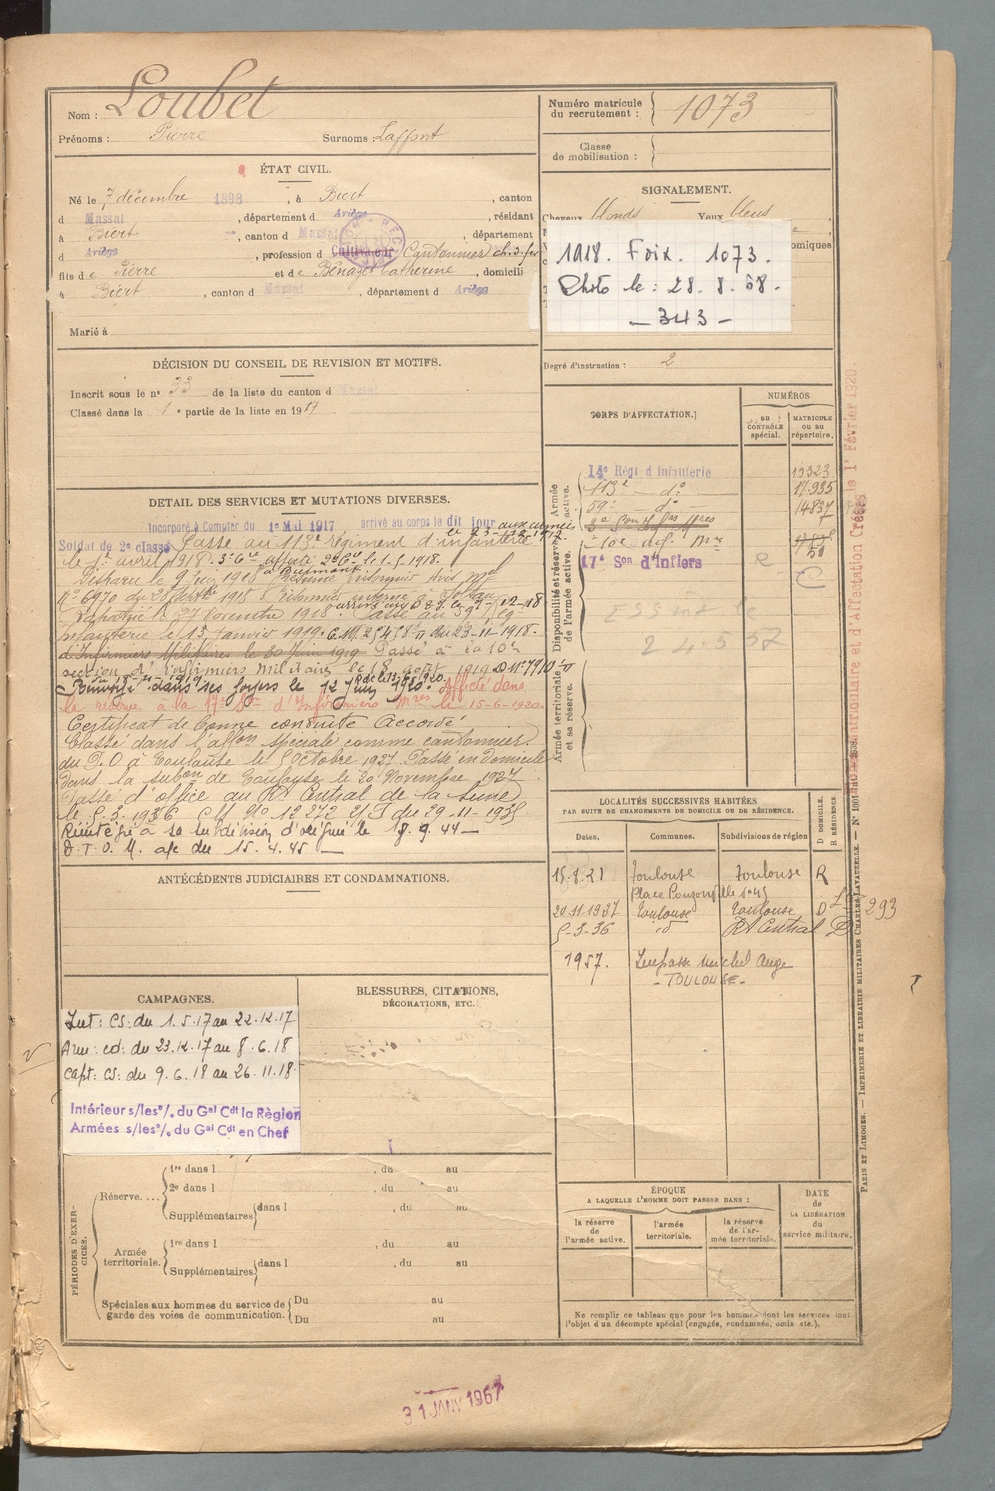 Nom : Loubet
Prénoms : Pierre Surnoms : Laffont
Numéro matricule
du recrutement : 1073
Classe
de mobilisation :
ÉTAT CIVIL.
Né le 7 décembre 1898, à Biert, canton
d Massat, département d Ariège, résidant
à Biert, canton d Massat, département
d Ariège, profession d Cultivateur Cantonnier ch. d. fer
fils de Pierre et de Bénazet Catherine, domicilié
à Biert, canton d Massat, département d Ariège
Marié à
SIGNALEMENT.
Cheveux blonds Yeux bleus
1918. Foix. 1073.
Photo le : 28. 8. 58.
- 343 -
Degré d'instruction : 2
DÉCISION DU CONSEIL DE REVISION ET MOTIFS.
Inscrit sous le n° 33 de la liste du canton d Massat
Classé dans la 1e partie de la liste en 1917
CORPS D'AFFECTATION.
NUMÉROS
au
CONTRÔLE
spécial.
MATRICULE
ou au
répertoire.
Armée
active.
14e Régt d'Infanterie 12323
113e do 17.935
59e do 14837
10e
17e Son d'Infiers
50
R
C
Disponibilité et réserve
de l'armée active.
Armée territoriale
et sa réserve.
DETAIL DES SERVICES ET MUTATIONS DIVERSES.
Incorporé à Compter du 1er Mai 1917 arrivé au corps le dit jour aux armées
Soldat de 2e classe Passé au 113e régiment d'infanterie
le 1er avril 1918
Disparu le 9 juin 1918
No 6970 du
rapatrié le 27 Novembre 1918. Passé au 59e rég
Infanterie le 13 Janvier 1919. C.M. du 23-11-1918.
d'Infirmiers Militaires le 30 Juin 1919 Passé à la 10e
section d'infirmiers militaires le 18 août 1919
Renvoyé dans ses foyers le 12 Juin 1920. Affecté dans
la réserve à la 17e Son d'Infirmiers Mres le 15-6-1920.
Certificat de bonne conduite Accordé
Classé dans l'affon spéciale comme cantonnier
du P.O à Toulouse le 5 Octobre 1927. Passé en domicile
dans la subon de Toulouse le 20 Novembre 1927
Passé d'office au Rt Central de la Seine
le 5-3-1936 du 29-11-1935
Réintégré à sa subdivision d'origine le 18. 9. 44 -
D.T.O.M. a/c du 15. 4. 45 -
ANTÉCÉDENTS JUDICIAIRES ET CONDAMNATIONS.
LOCALITÉS SUCCESSIVES HABITÉES
PAR SUITE DE CHANGEMENTS DE DOMICILE OU DE RÉSIDENCE.
Dates. Communes. Subdivisions de région
D DOMICILE.
R RÉSIDENCE
15-8-21 Toulouse Toulouse R
20.11.1927 Toulouse Toulouse D
5-3-36 id Rt Central D
293
1957. Impasse Michel Ange
- TOULOUSE -
CAMPAGNES.
Int : CS : du 1.5.17 au 22.12.17
Arm : cd : du 23.12.17 au 8.6.18
Capt : CS : du 9.6.18 au 26.11.18
Intérieur s/les % du Gal Cdt la Région
Armées s/les % du Gal Cdt en Chef
BLESSURES, CITATIONS,
DÉCORATIONS, ETC.
PÉRIODES D'EXERCICES.
Réserve....
1re dans l , du au
2e dans l , du au
Supplémentaires dans l , du au
Armée
territoriale.
1re dans l , du au
Supplémentaires dans l , du au
Spéciales aux hommes du service de
garde des voies de communication.
Du au
Du au
ÉPOQUE
A LAQUELLE L'HOMME DOIT PASSER DANS :
la réserve
de l'armée active.
l'armée
territoriale.
la réserve
de l'armée territoriale.
DATE
de
LA LIBÉRATION
du
service militaire.
Ne remplir ce tableau que pour les hommes dont les services font
l'objet d'un décompte spécial (engagés, condamnés, omis etc.).
PARIS ET LIMOGES. — IMPRIMERIE ET LIBRAIRIE MILITAIRES CHARLES-LAVAUZELLE.
31 JANV 1967